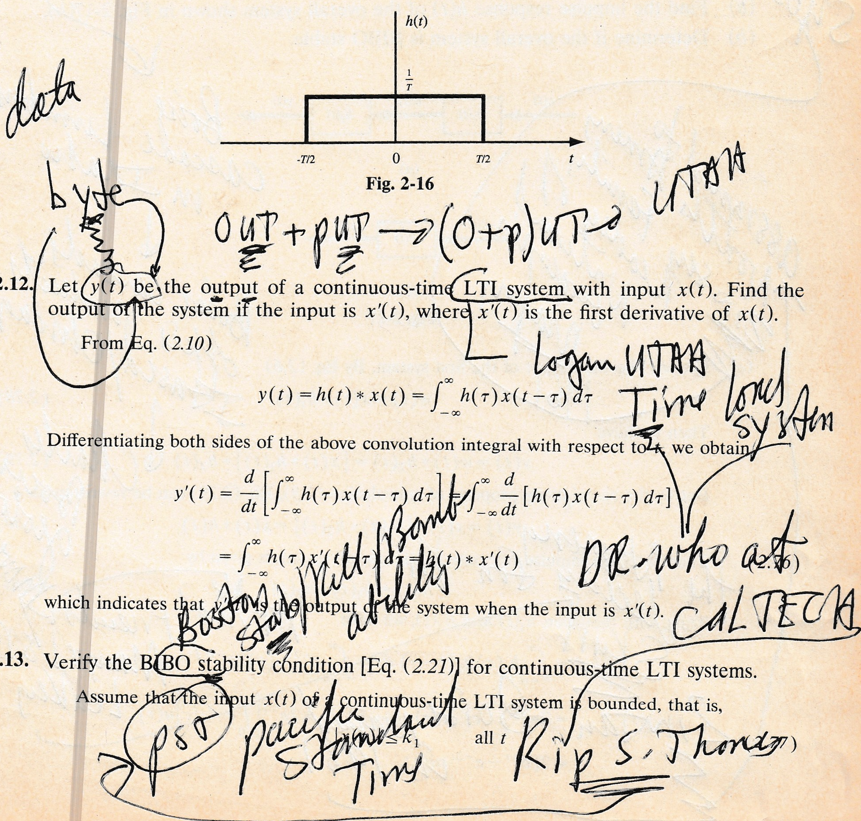 h(t)
1/T
data
-T/2 0 T/2 t
Fig. 2-16
byte
UTAH
OUT + PUT → (O+P)UT →
2.12. Let y(t) be the output of a continuous-time LTI system with input x(t). Find the
output of the system if the input is x'(t), where x'(t) is the first derivative of x(t).
From Eq. (2.10)
Logan UTAH
y(t) = h(t) * x(t) = ∫_{-∞}^{∞} h(τ)x(t − τ) dτ
Time
system
Differentiating both sides of the above convolution integral with respect to t, we obtain
y'(t) = d/dt [∫_{-∞}^{∞} h(τ)x(t − τ) dτ] = ∫_{-∞}^{∞} d/dt [h(τ)x(t − τ) dτ]
= ∫_{-∞}^{∞} h(τ)x'(t − τ) dτ = h(t) * x'(t)
DR. who at
CALTECH
Boston
ability
which indicates that y'(t) is the output of the system when the input is x'(t).
.13. Verify the BIBO stability condition [Eq. (2.21)] for continuous-time LTI systems.
Assume that the input x(t) of a continuous-time LTI system is bounded, that is,
PST
pacific
Standard
Time
≤ k₁ all t
Rip S. Thomas